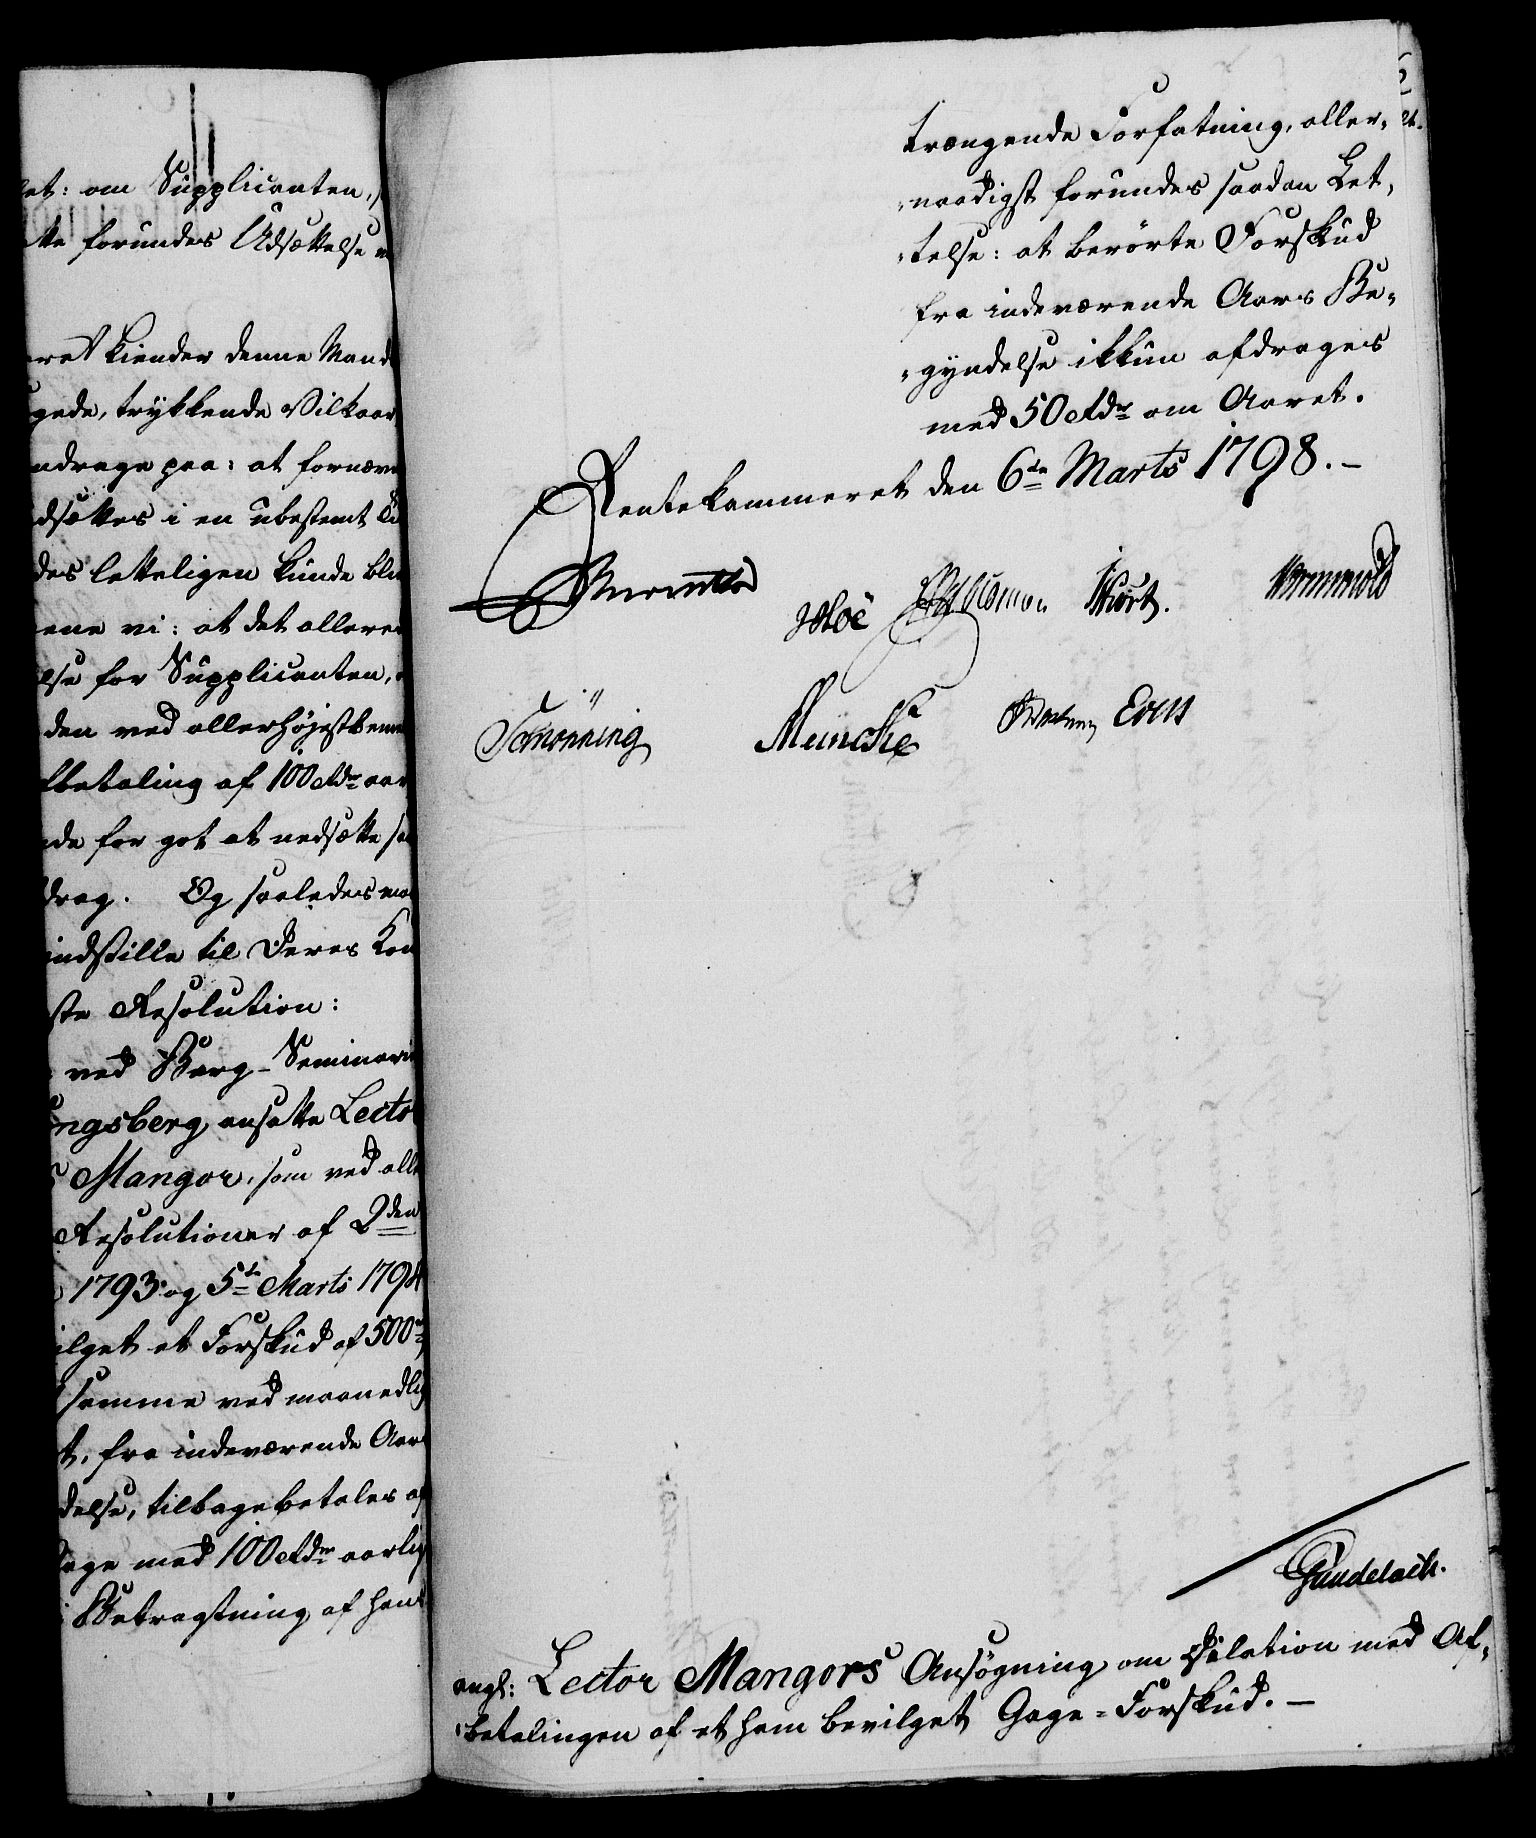 et: om Supplicanten,
forundes Udsættelse
kiender denne Mand
gede, trykkende Vilkaar
ndrage paa: at fornævn
dsættes i en ubestemt Ti
des letteligen kunde bli
ene vi: at det allere
lse for Supplicanten,
den ved allerhøjstbem
betaling af 100 rdr aar
de for got at nedsætte sa
drag. Og saaledes maa
indstille til Deres Kon
ste Resolution:
ved Berg-Seminari
ngsberg ansatte Lector
Mangor, som ved alle
Resolutioner af 2den
1793 og 5te Marts 1794
ilget et Forskud af 500 rdr
samme ved maanedlig
t, fra indeværende Aars
delse, tilbagebetales af
Gage med 100 rdr aarlig
i Betragtning af hans
trængende Forfatning, aller-
-naadigst forundes saadan Let-
-telse: at berörte Forskud
fra indeværende Aars Be-
-gyndelse ikkun afdrages
med 50 rdr om Aaret.
Rentekammeret den 6te Marts 1798.-
Hoë Wormskiold
Schönning Müncke Evers
Gundelach.
angl: Lector Mangors Ansøgning om Dilation med Af-
-betalingen af et ham bevilget Gage-Forskud.-